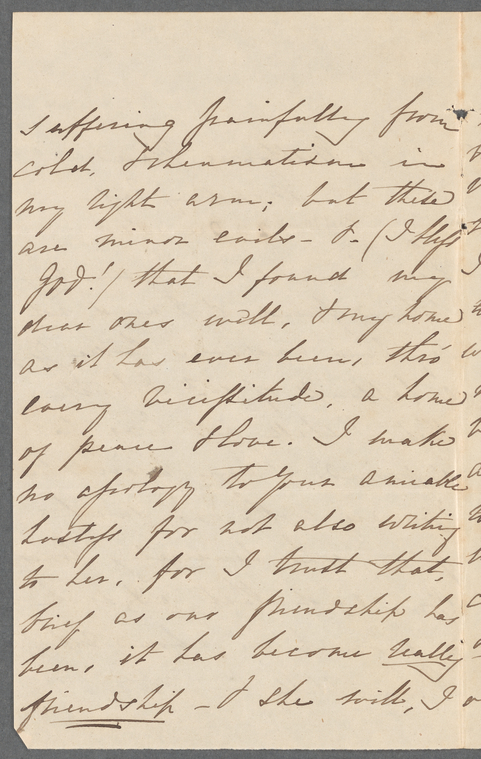 suffering painfully from
cold, & rheumatism in
my right arm; but these
are minor evils - & (I bless
God!) that I found my
dear ones well, & my home
as it has ever been, thro'
every vicissitude, a home
of peace & love. I make
no apology to your amiable
hostess for not also writing
to her, for I trust that,
brief as our friendship has
been, it has become really
friendship - & she will, I